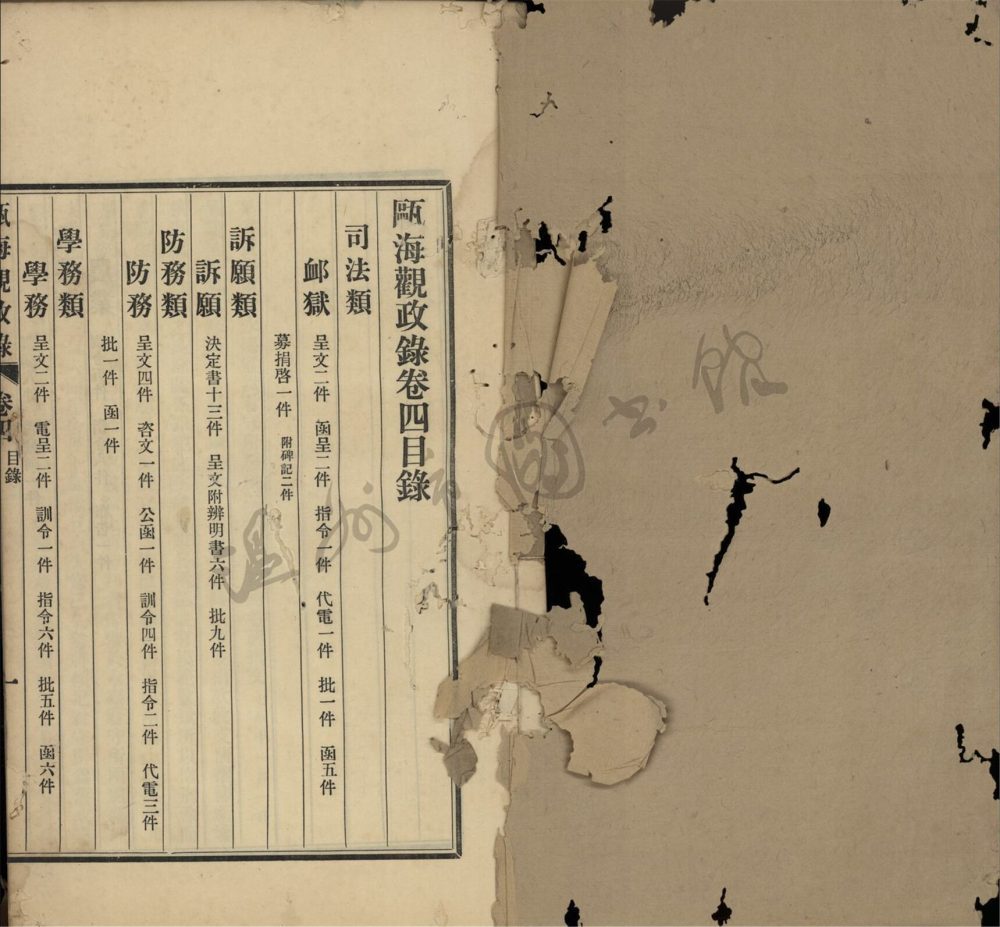 甌海觀政錄卷四目錄
司法類
卹獄 呈文二件 函呈二件 指令一件 代電一件 批一件 函五件
募捐啓一件 附碑記二件
訴願類
訴願 決定書十三件 呈文附辨明書六件 批九件
防務類
防務 呈文四件 咨文一件 公函一件 訓令四件 指令二件 代電三件
批一件 函一件
學務類
學務 呈文二件 電呈二件 訓令一件 指令六件 批五件 函六件
甌海觀政錄 卷四 目錄 一
溫州市圖書館